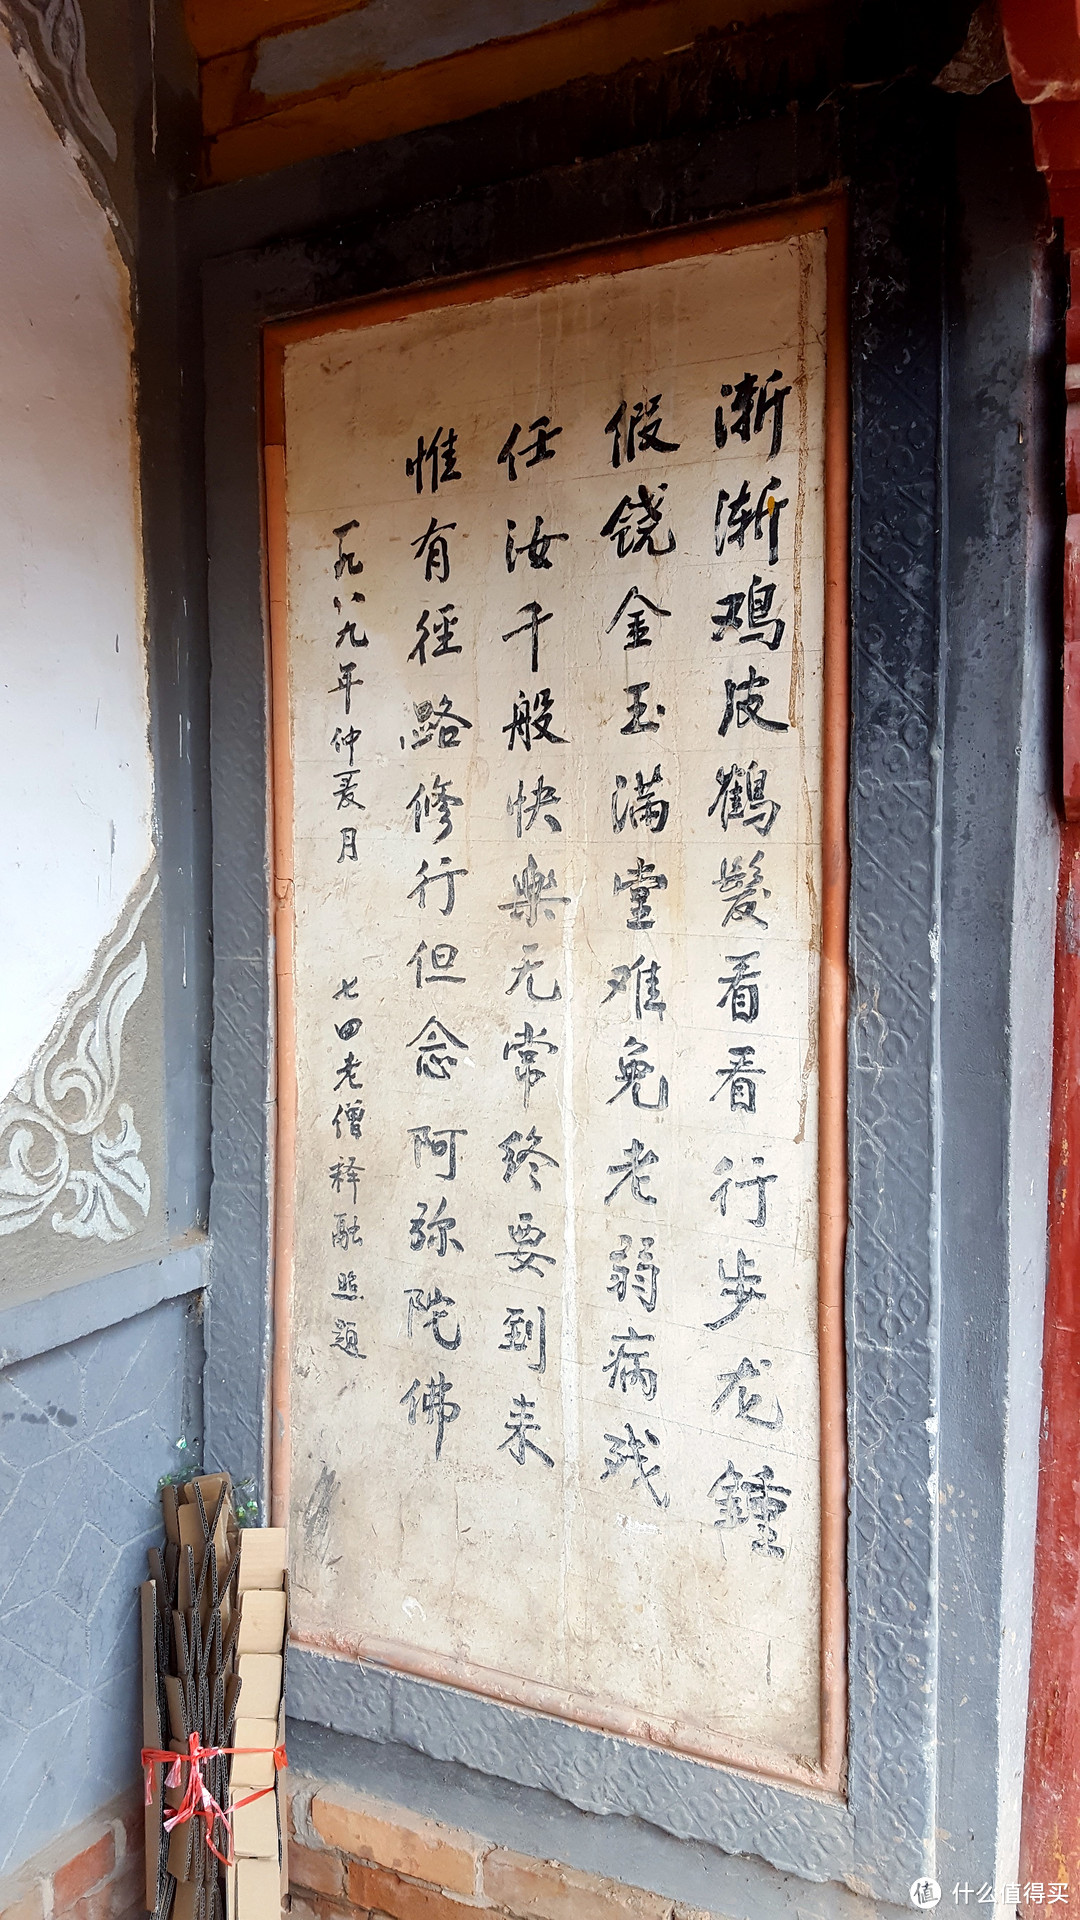 渐渐鸡皮鹤髮看看行步龙鍾
假饶金玉满堂难免老弱病残
任汝千般快樂无常终要到来
惟有徑路修行但念阿弥陀佛
一九八九年仲夏月 七四老僧释融照题
值 什么值得买